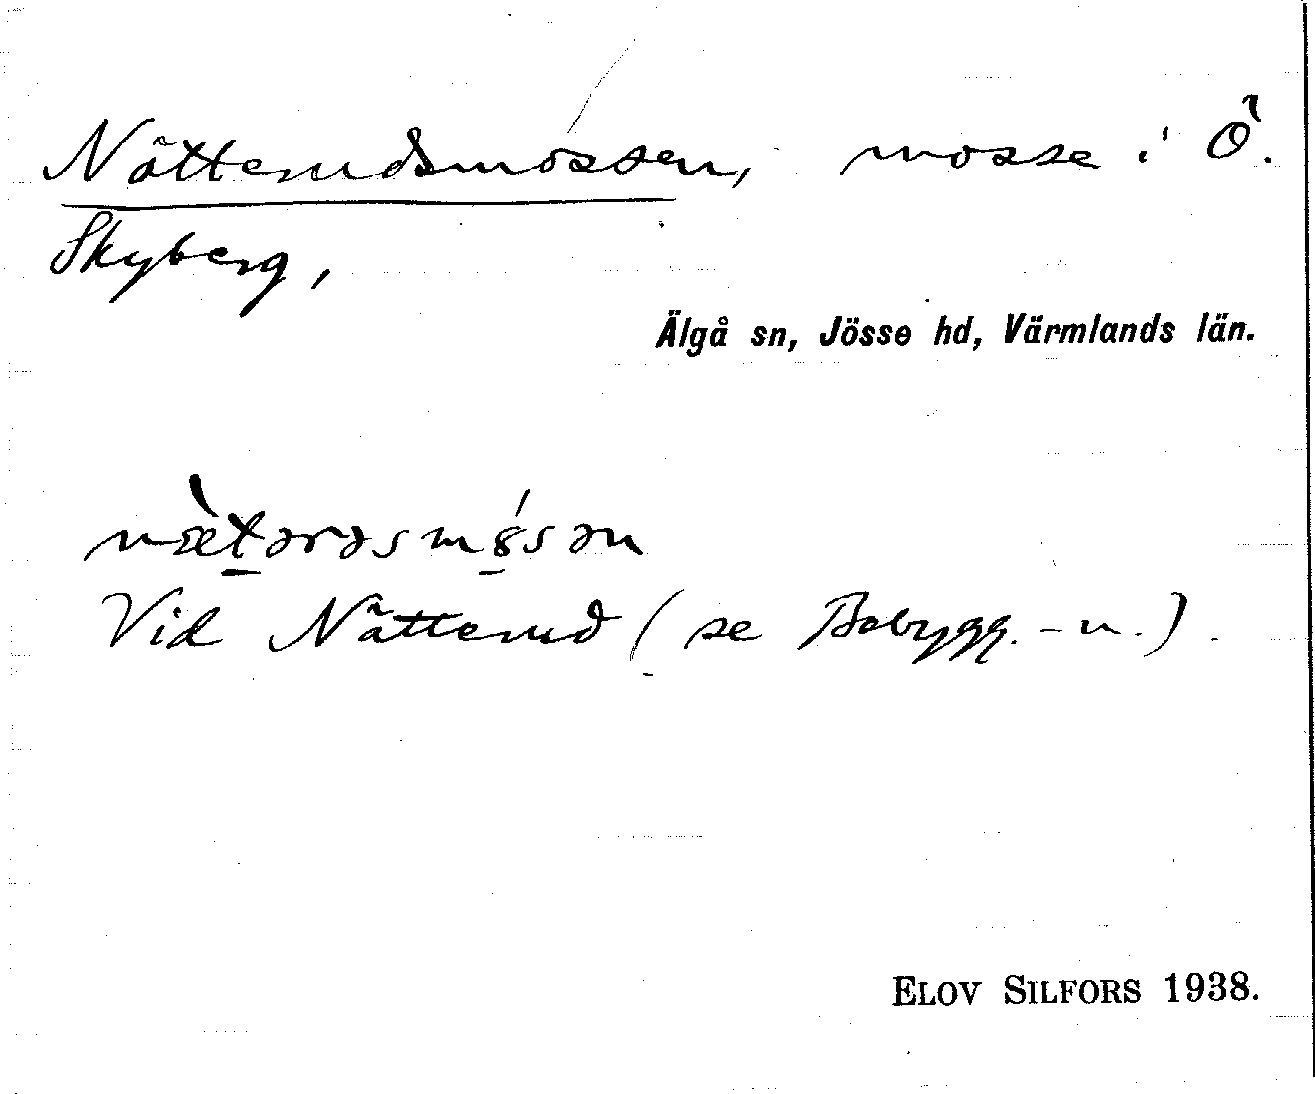 Nätterudsmossen, mosse i Ö.
Skyberg,
Älgå sn, Jösse hd, Värmlands län.
Vid Nätterud (se Bebygg.-n.).
ELOV SILFORS 1938.